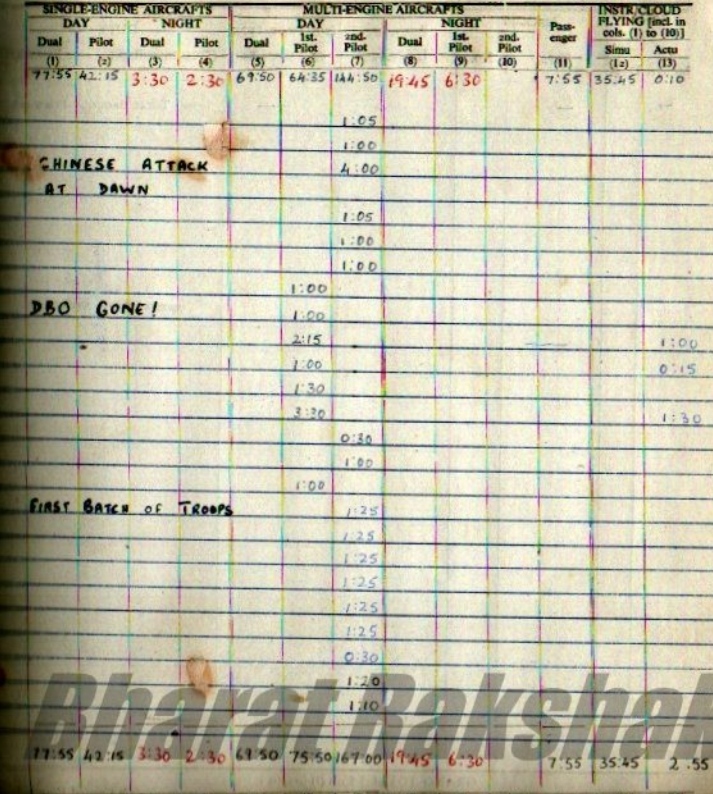 SINGLE-ENGINE AIRCRAFTS MULTI-ENGINE AIRCRAFTS INSTR/CLOUD
DAY NIGHT DAY NIGHT Pass- FLYING [incl. in
enger cols. (1) to (10)]
Dual Pilot Dual Pilot Dual 1st. Pilot 2nd. Pilot Dual 1st. Pilot 2nd. Pilot Simu Actu
(1) (2) (3) (4) (5) (6) (7) (8) (9) (10) (11) (12) (13)
77:55 42:15 3:30 2:30 69:50 64:35 144:50 19:45 6:30 7:55 35:45 0:10
1:05
1:00
CHINESE ATTACK 4:00
AT DAWN
1:05
1:00
1:00
1:00
DBO GONE! 1:00
2:15 1:00
1:00 0:15
1:30
3:30 1:30
0:30
1:00
1:00
FIRST BATCH OF TROOPS 1:25
1:25
1:25
1:25
1:25
1:25
0:30
1:20
1:10
Bharat Rakshak
77:55 42:15 3:30 2:30 69:50 75:50 167:00 19:45 6:30 7:55 35:45 2.55